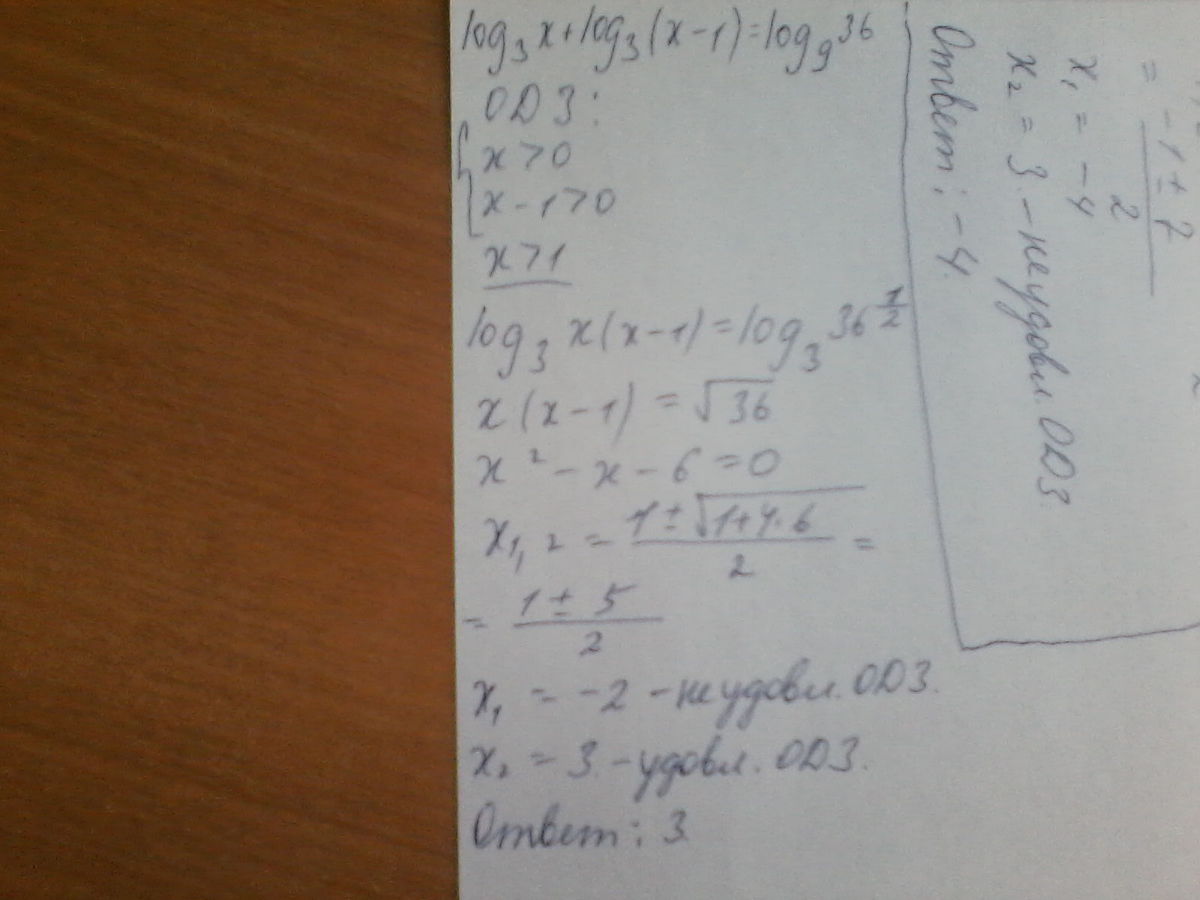 log₃x+log₃(x-1)=log₉36
ОДЗ:
{x>0
x-1>0
x>1
log₃x(x-1)=log₃36^½
x(x-1)=√36
x²-x-6=0
x₁,₂=(1±√(1+4·6))/2=
=(1±5)/2
x₁=-2-неудовл.ОДЗ.
x₂=3-удовл.ОДЗ.
Ответ: 3
=(-1±7)/2
x₁=-4
x₂=3-неудовл.ОДЗ
Ответ: -4.